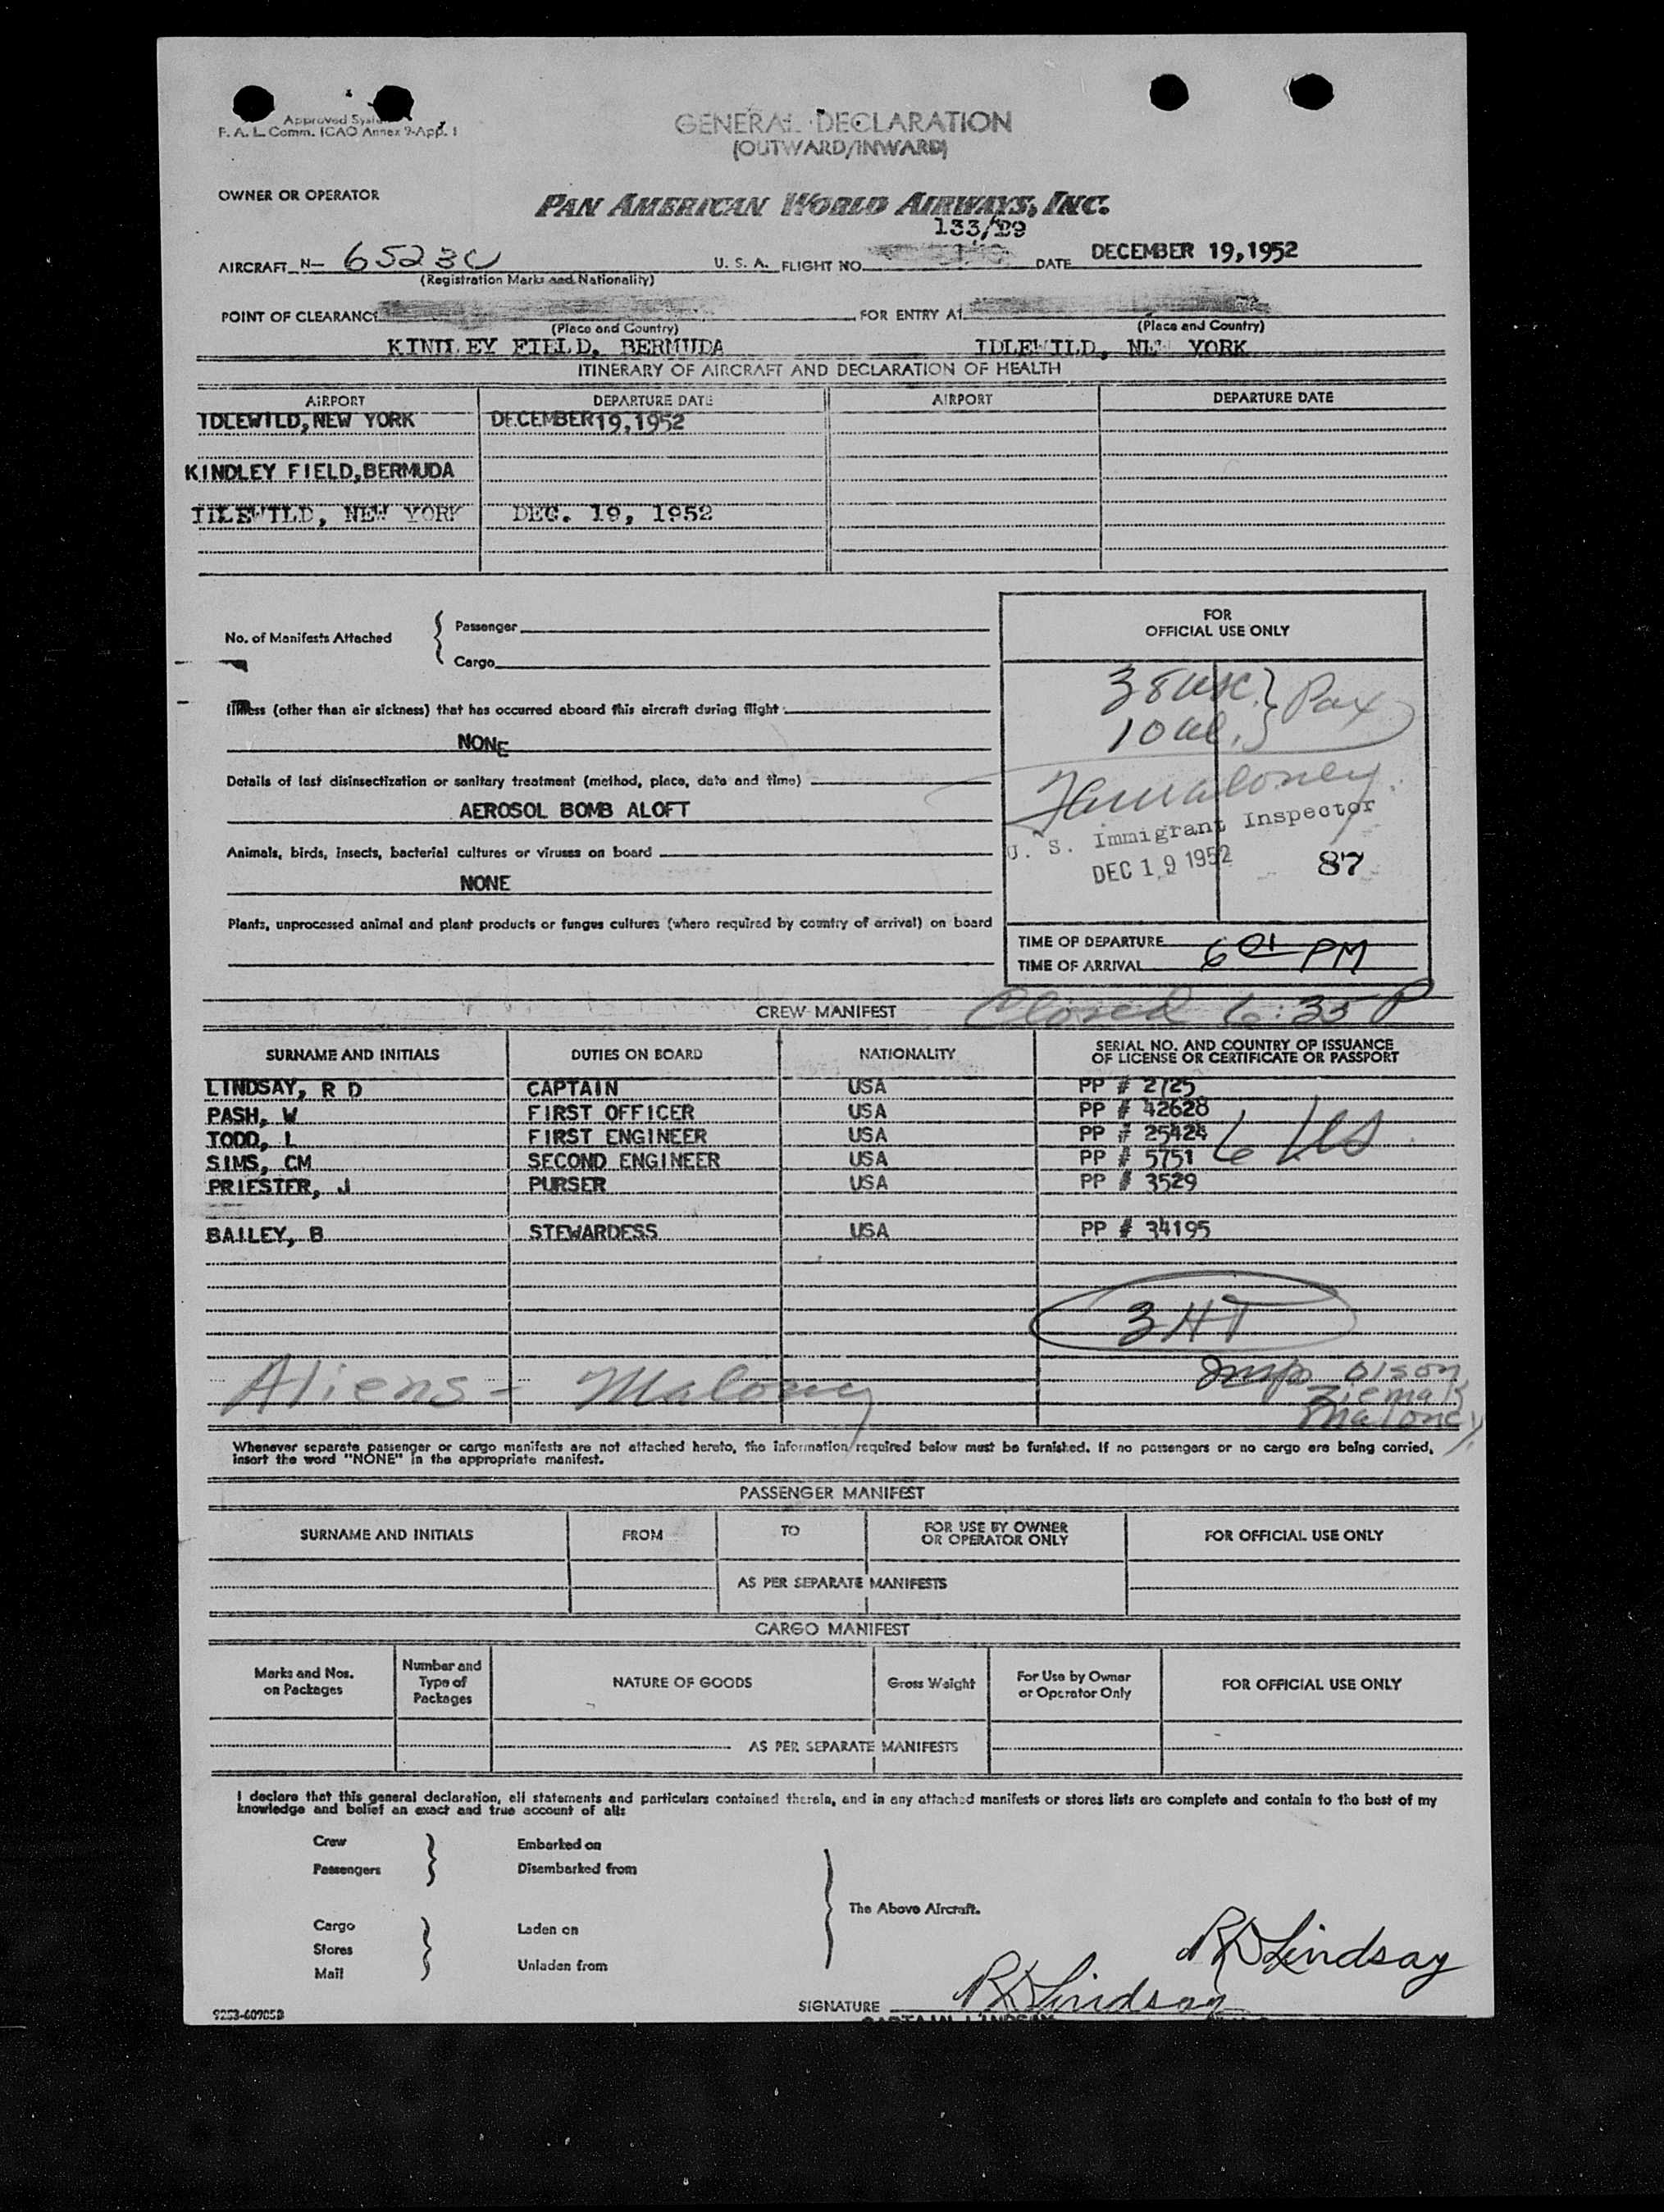 Approved
F. A. L. Comm. ICAO Annex 9-App. 1
GENERAL DECLARATION
(OUTWARD/INWARD)
OWNER OR OPERATOR
PAN AMERICAN WORLD AIRWAYS, INC.
133/29
AIRCRAFT N- 6523C U. S. A. FLIGHT NO. DATE DECEMBER 19,1952
(Registration Marks and Nationality)
POINT OF CLEARANCE FOR ENTRY AT
(Place and Country) (Place and Country)
KINDLEY FIELD, BERMUDA IDLEWILD, NEW YORK
ITINERARY OF AIRCRAFT AND DECLARATION OF HEALTH
AIRPORT DEPARTURE DATE AIRPORT DEPARTURE DATE
IDLEWILD,NEW YORK DECEMBER19,1952
KINDLEY FIELD,BERMUDA
IDLEWILD, NEW YORK DEC. 19, 1952
No. of Manifests Attached { Passenger
Cargo
FOR
OFFICIAL USE ONLY
38 usc. } Pax
10 al.
Illness (other than air sickness) that has occurred aboard this aircraft during flight
NONE
Details of last disinsectization or sanitary treatment (method, place, date and time)
AEROSOL BOMB ALOFT
Maloney
U. S. Immigrant Inspector
DEC 19 1952 87
Animals, birds, insects, bacterial cultures or viruses on board
NONE
Plants, unprocessed animal and plant products or fungus cultures (where required by country of arrival) on board
TIME OF DEPARTURE
TIME OF ARRIVAL 6 01 PM
CREW MANIFEST Closed 6:35 P
SURNAME AND INITIALS DUTIES ON BOARD NATIONALITY SERIAL NO. AND COUNTRY OF ISSUANCE
OF LICENSE OR CERTIFICATE OR PASSPORT
LINDSAY, R D CAPTAIN USA PP # 2725
PASH, W FIRST OFFICER USA PP # 42628
TODD, L FIRST ENGINEER USA PP # 25424
SIMS, CM SECOND ENGINEER USA PP # 5751
PRIESTER, J PURSER USA PP # 3529
6 US
BAILEY, B STEWARDESS USA PP # 34195
3 HT
Aliens - Maloney
Insp Olson
Ziemak
Maloney
Whenever separate passenger or cargo manifests are not attached hereto, the information required below must be furnished. If no passengers or no cargo are being carried,
insert the word "NONE" in the appropriate manifest.
PASSENGER MANIFEST
SURNAME AND INITIALS FROM TO FOR USE BY OWNER
OR OPERATOR ONLY FOR OFFICIAL USE ONLY
AS PER SEPARATE MANIFESTS
CARGO MANIFEST
Marks and Nos.
on Packages
Number and
Type of
Packages
NATURE OF GOODS
Gross Weight
For Use by Owner
or Operator Only
FOR OFFICIAL USE ONLY
AS PER SEPARATE MANIFESTS
I declare that this general declaration, all statements and particulars contained therein, and in any attached manifests or stores lists are complete and contain to the best of my
knowledge and belief an exact and true account of all:
Crew
Passengers
Embarked on
Disembarked from
The Above Aircraft.
Cargo
Stores
Mail
Laden on
Unladen from
RD Lindsay
SIGNATURE RD Lindsay
CAPTAIN LINDSAY
9253-60905B